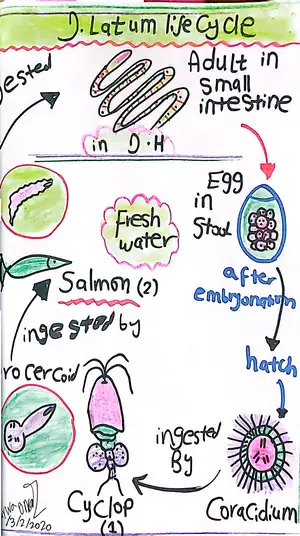 D. Latum life Cycle
Adult in
small
intestine
in D.H
Egg
in
Stool
Fresh
water
after
embryonation
Salmon (2)
ingested by
hatch
ingested
By
Cyclop
(1)
Coracidium
/3/2/2020